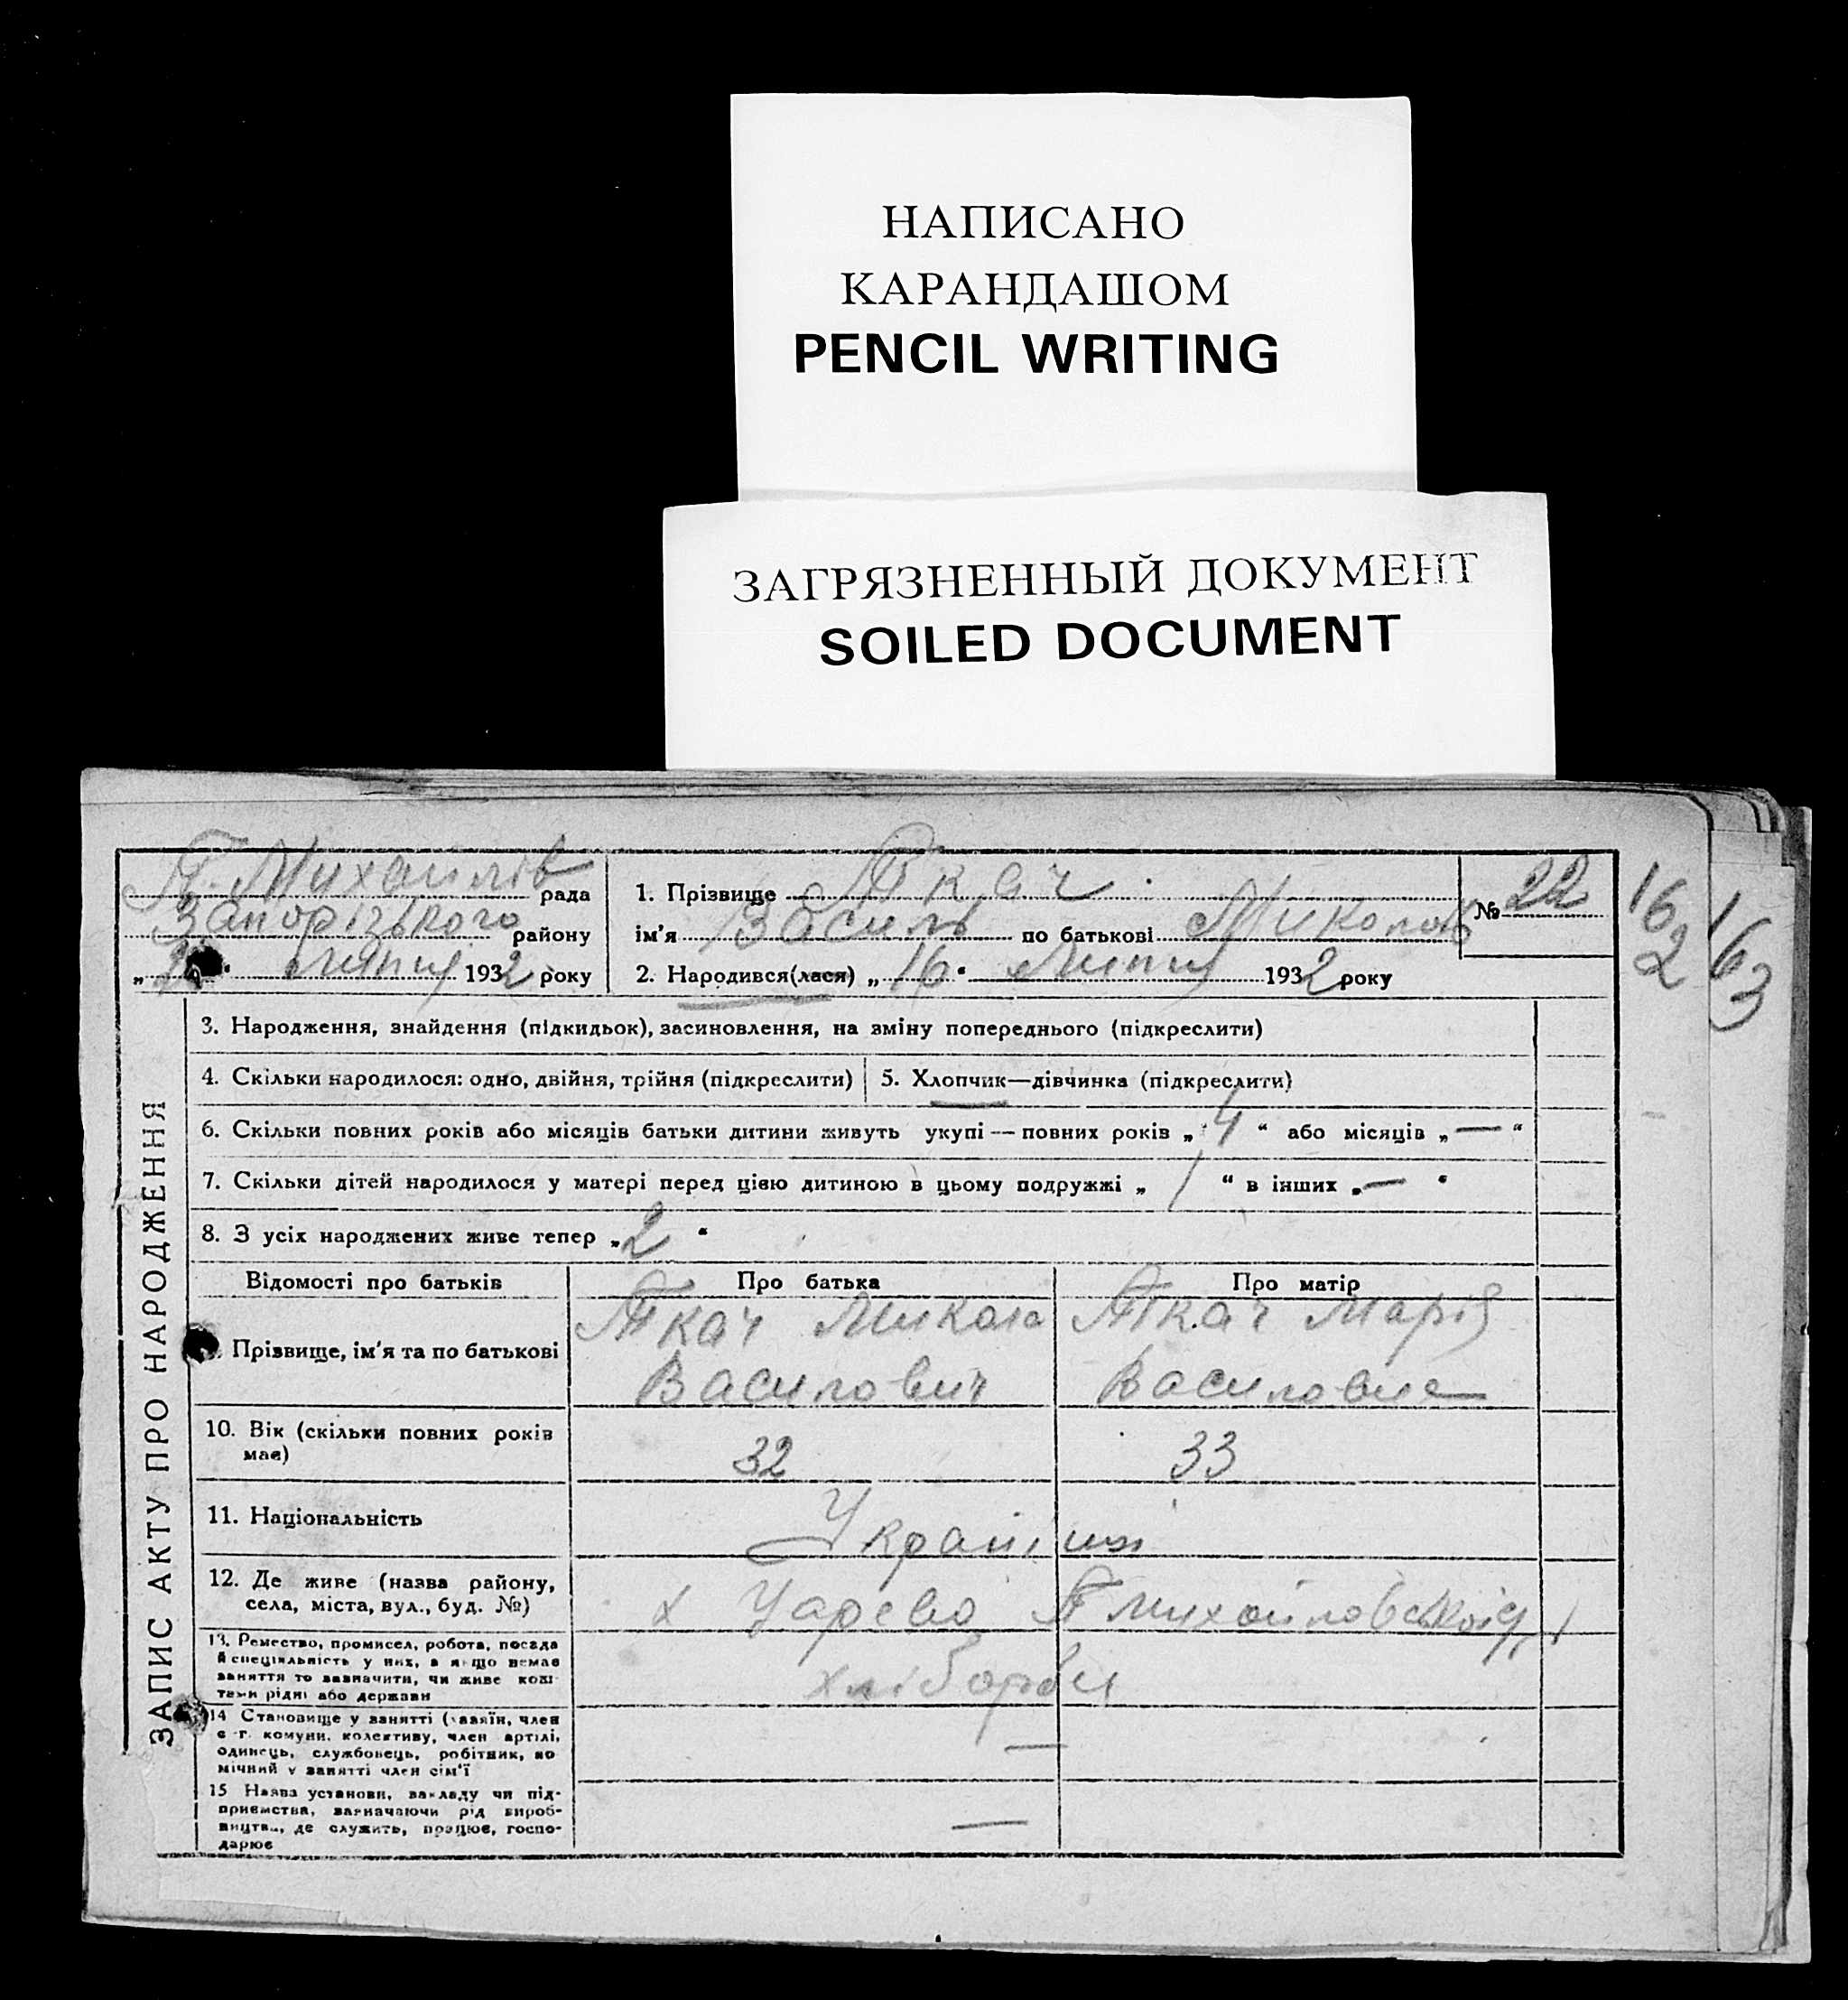 НАПИСАНО
КАРАНДАШОМ
PENCIL WRITING
ЗАГРЯЗНЕННЫЙ ДОКУМЕНТ
SOILED DOCUMENT
Михайлів рада
Запорізького району
„ “ липня 1932 року
1. Прізвище Ткач
ім'я Василь по батькові Миколов
2. Народився(лася) „16“ Липня 1932 року
№ 22
162
163
ЗАПИС АКТУ ПРО НАРОДЖЕННЯ
3. Народження, знайдення (підкидьок), засиновлення, на зміну попереднього (підкреслити)
4. Скільки народилося: одно, двійня, трійня (підкреслити)
5. Хлопчик—дівчинка (підкреслити)
6. Скільки повних років або місяців батьки дитини живуть укупі — повних років „4“ або місяців „—“
7. Скільки дітей народилося у матері перед цією дитиною в цьому подружжі „1“ в інших „—“
8. З усіх народжених живе тепер „2“
Відомості про батьків Про батька Про матір
Прізвище, ім'я та по батькові
Ткач Микола
Василович
Ткач Марія
Василовне
10. Вік (скільки повних років
має)
32 33
11. Національність
Україінці
12. Де живе (назва району,
села, міста, вул., буд. №)
х Царево Михайловської
13. Ремество, промисел, робота, посада
й спеціяльність у них, а якщо немає
заняття то зазначити, чи живе кош-
тами рідні або держави
хлібороби
14 Становище у занятті (хазяїн, член
с.-г. комуни, колективу, член артілі,
одинець, службовець, робітник, по
мічний у занятті член сім'ї
—
15 Назва установи, закладу чи під-
приємства, зазначаючи рід вироб-
ництва, де служить, працює, госпо-
дарює
—